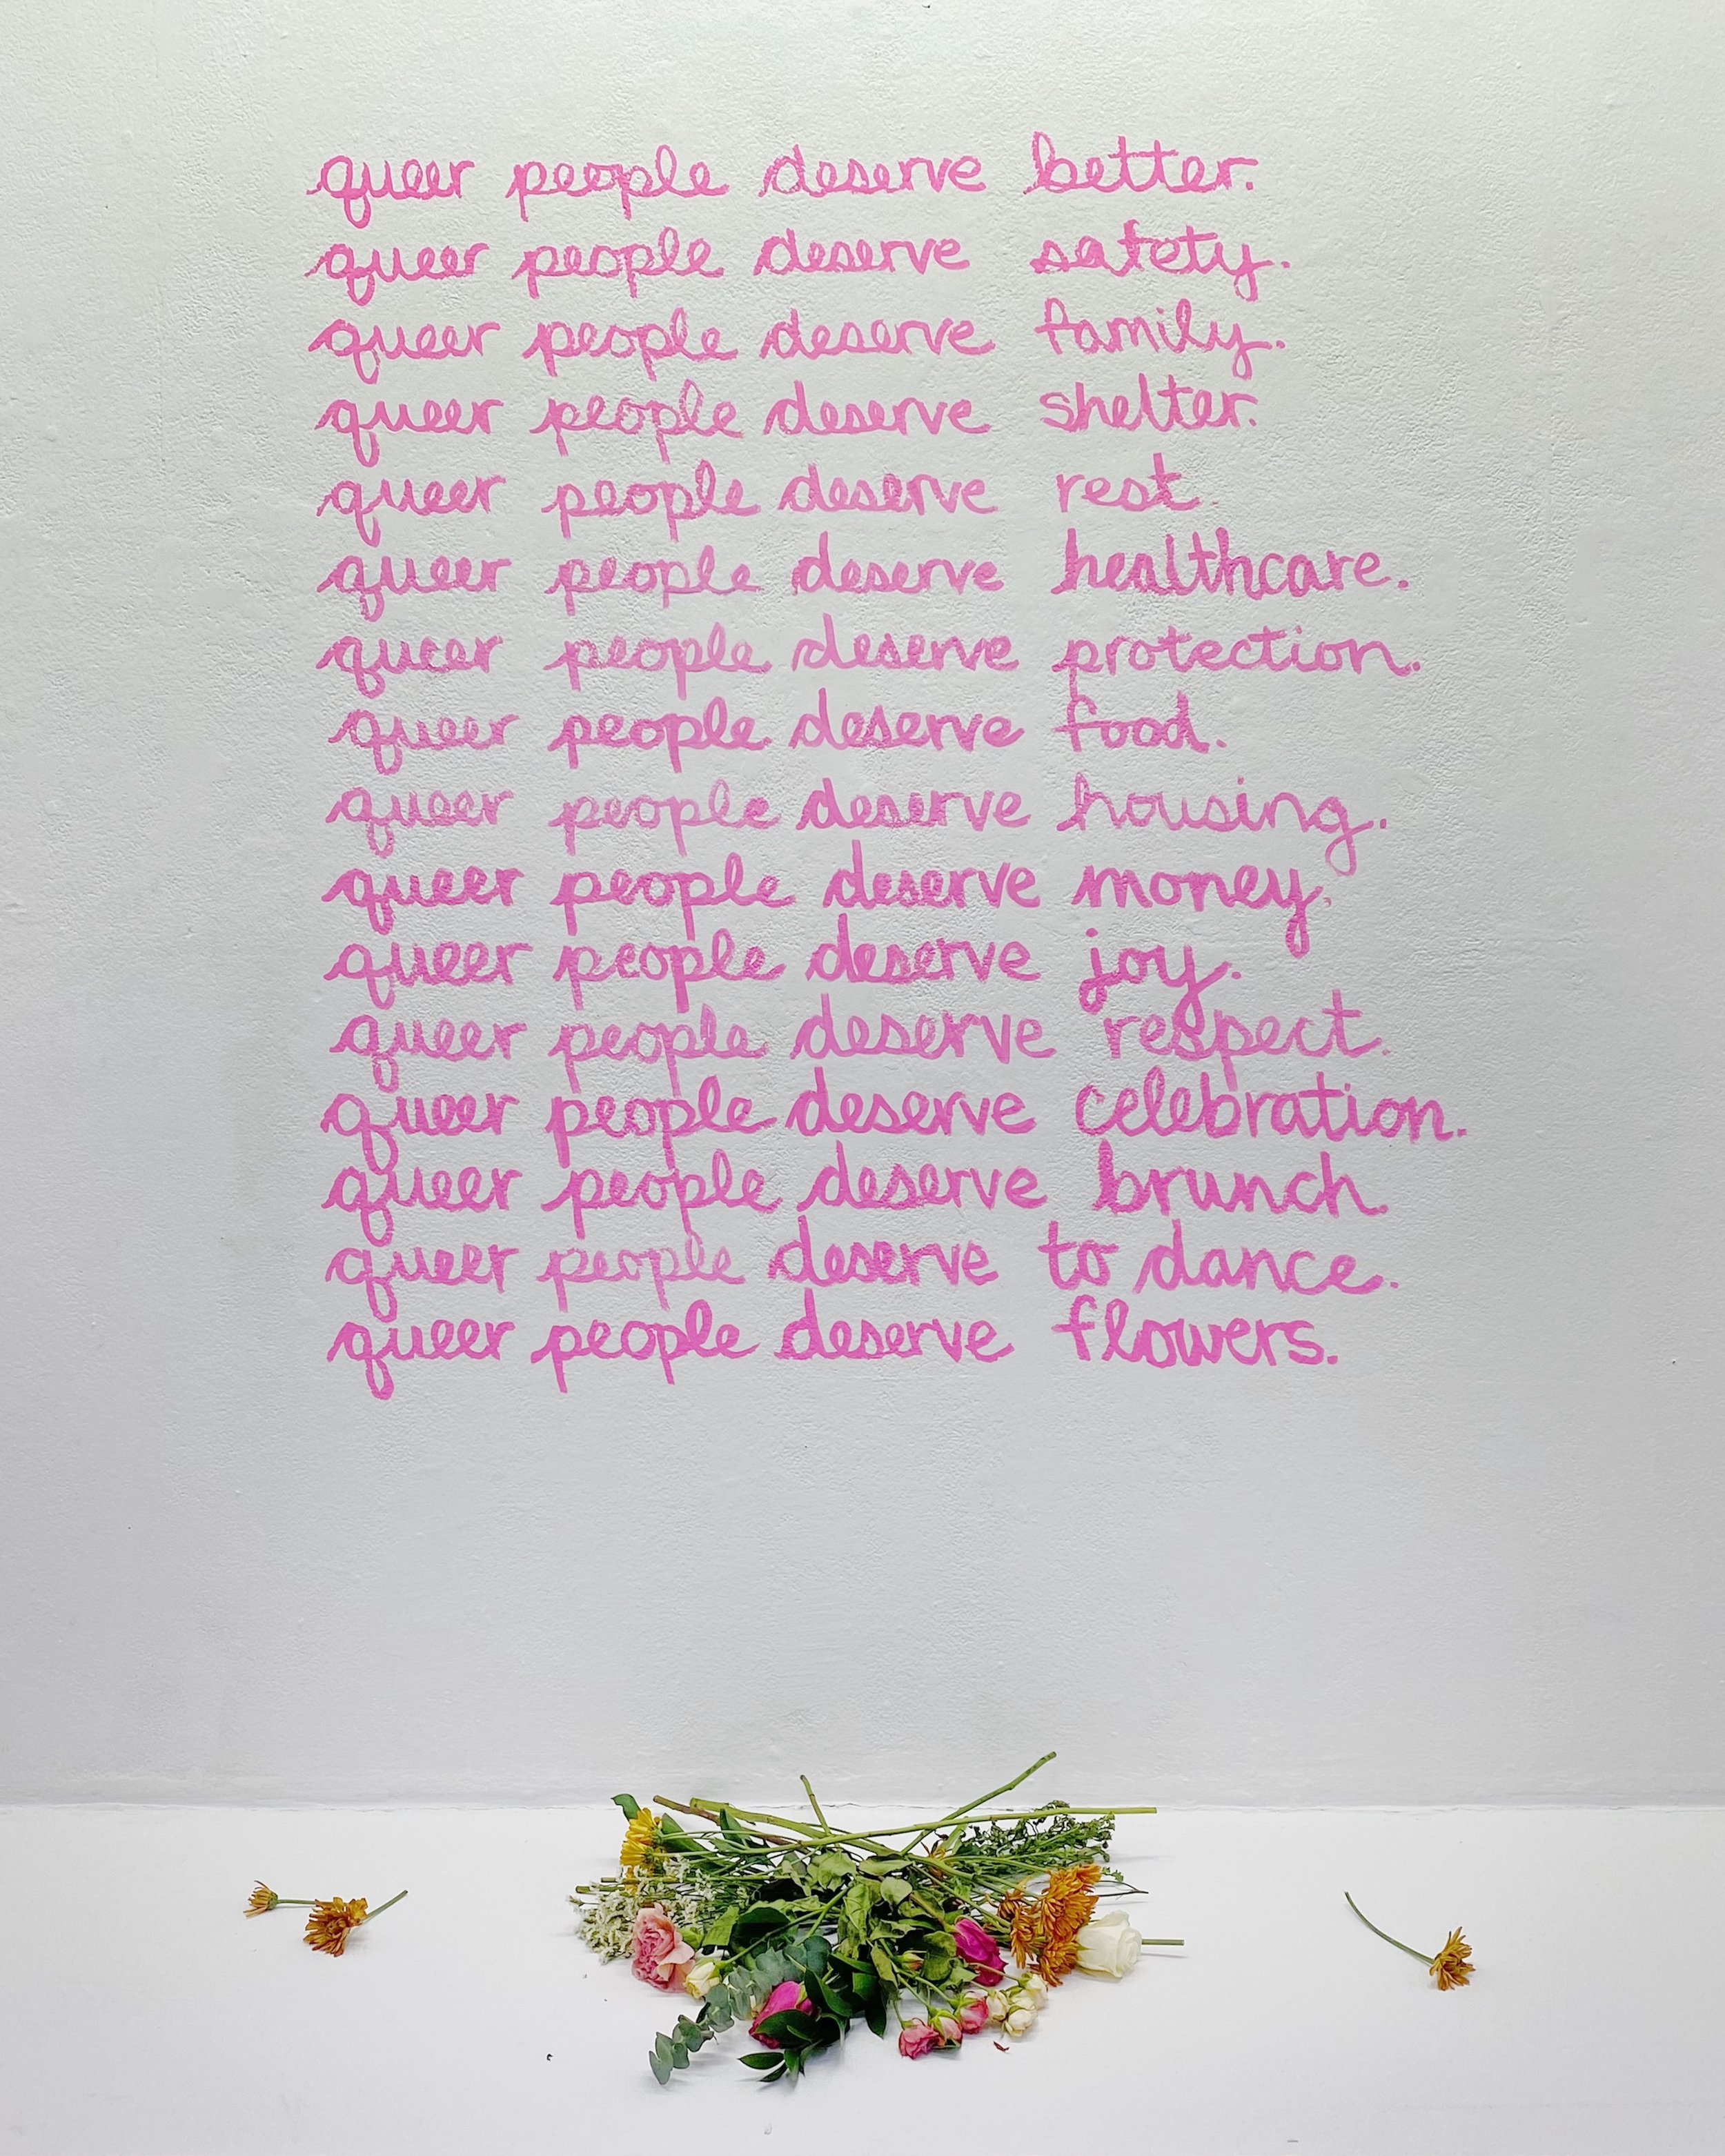 queer people deserve better.
queer people deserve safety.
queer people deserve family.
queer people deserve shelter.
queer people deserve rest.
queer people deserve healthcare.
queer people deserve protection.
queer people deserve food.
queer people deserve housing.
queer people deserve money.
queer people deserve joy.
queer people deserve respect.
queer people deserve celebration.
queer people deserve brunch.
queer people deserve to dance.
queer people deserve flowers.